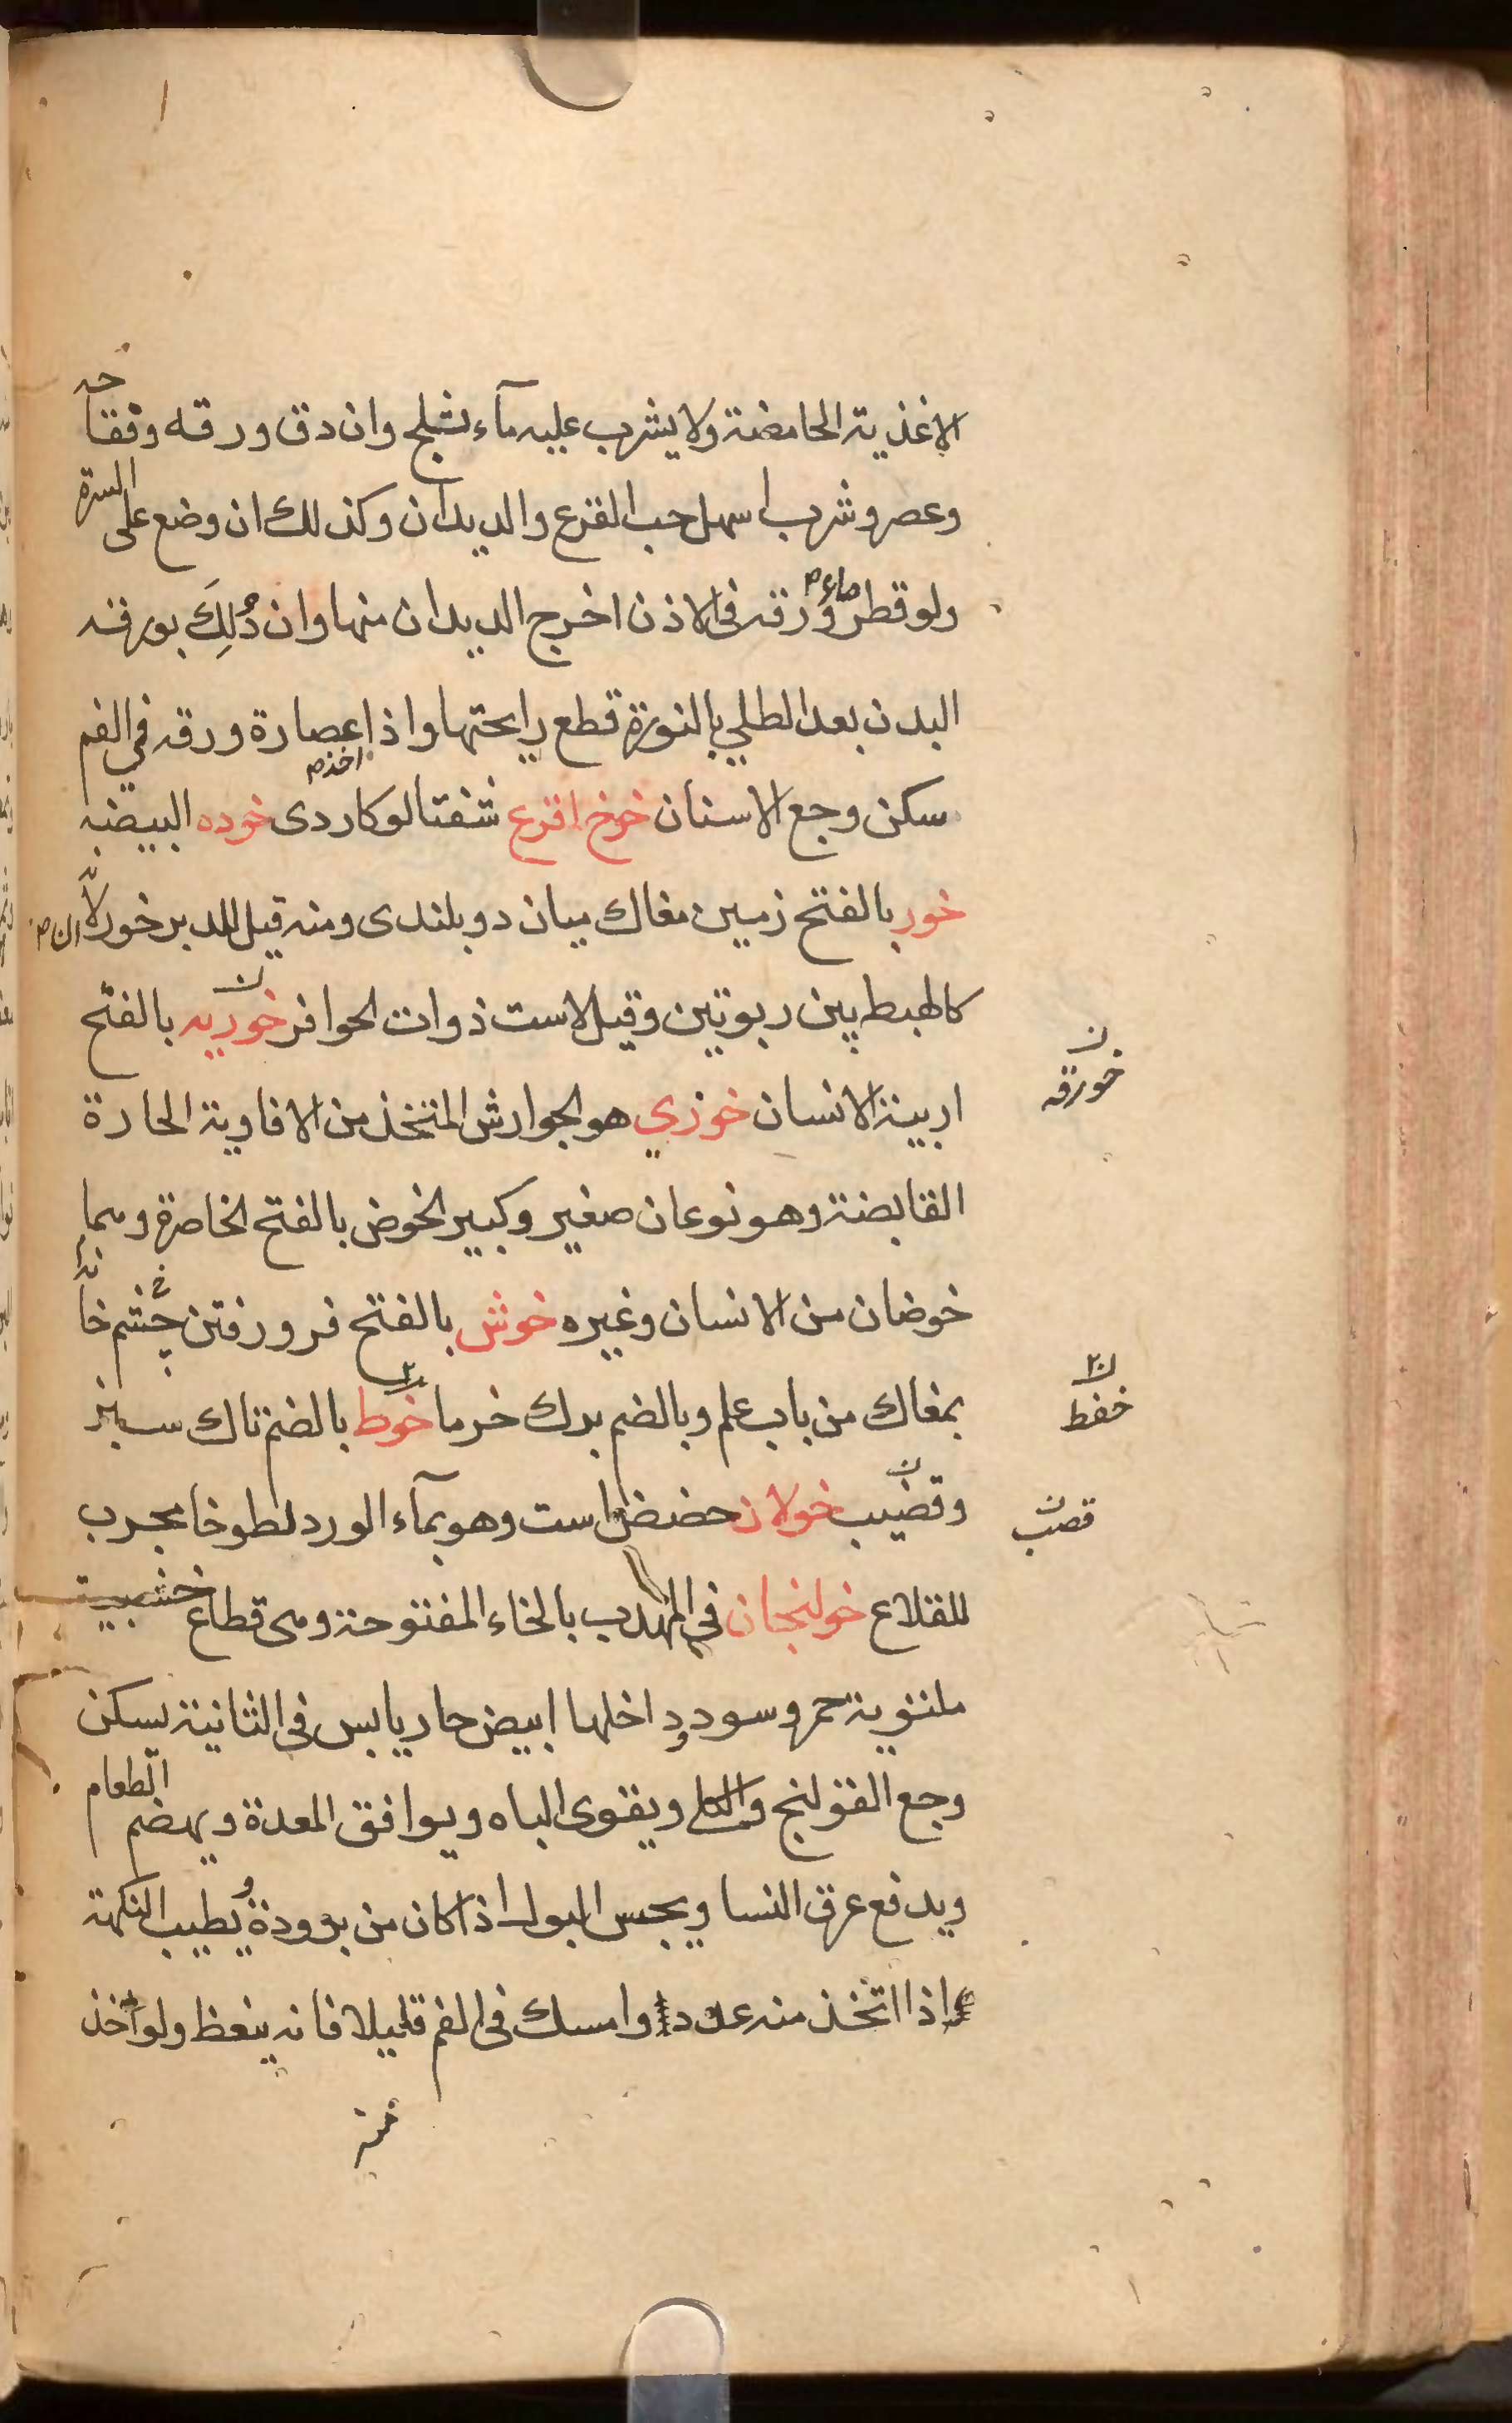 الاغذية الحامضة ولا يشرب عليه مآء بثلج وان دق ورقه وفقاحه
وعصر وشرب اسهل حب القرع والديدان وكذلك ان وضع على السرة
ولو قطر ماء ورقه فى الاذن اخرج الديدان منها وان دُلِكَ بورقه
البدن بعد الطلي بالنورة قطع رايحتها واذا اخذ عصارة ورقه في الفم
سكن وجع الاسنان خوخ اقرع شفتالو كاردى خوده البيضة
خور بالفتح زمين مغاك ميان دو بلندى ومنه قيل للدبر خور لانه
كالهبط بين ربوتين وقيل لاست ذوات الحوافر خوريه بالفتح
خورقه
اربية الانسان خوزي هو الجوارش المتخذ من الافاوية الحارة
القابضة وهو نوعان صغير وكبير الخوض بالفتح الخاصرة وهما
خوضان من الانسان وغيره خوش بالفتح فرو رفتن چشم خانه
بمغاك من باب علم وبالضم برك خرما خوط بالضم تاك سبز
خفط
وقضيب خولان حضض است وهو بمآء الورد لطوخا مجرب
قصب
للقلاع خولنجان فى المهذب بالخاء المفتوحة وهى قطاع خشبية
ملتوية حمر وسود وداخلها ابيض حار يابس فى الثانية يسكن
وجع القولنج والكلى ويقوى الباه ويوافق المعدة ويهضم الطعام
ويدفع عرق النسا ويحبس البول اذا كان من برودة ويطيب النكهة
اذا اتخذ منه عود وامسك فى الفم قليلا فانه ينعظ ولو اخذ
منه